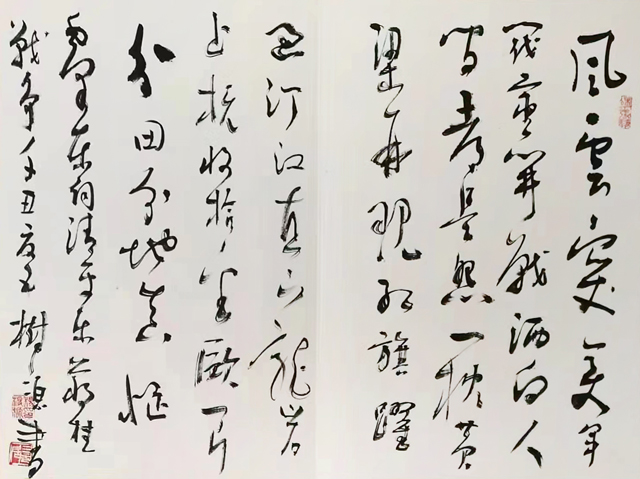 風雲突變軍
閥重開戰洒向人
間都是怨一枕黄
粱再現紅旗躍
過汀江直下龍岩
上杭收拾金甌一片
分田分地真忙
毛澤東詞清平樂蔣桂
戰争辛丑樹書